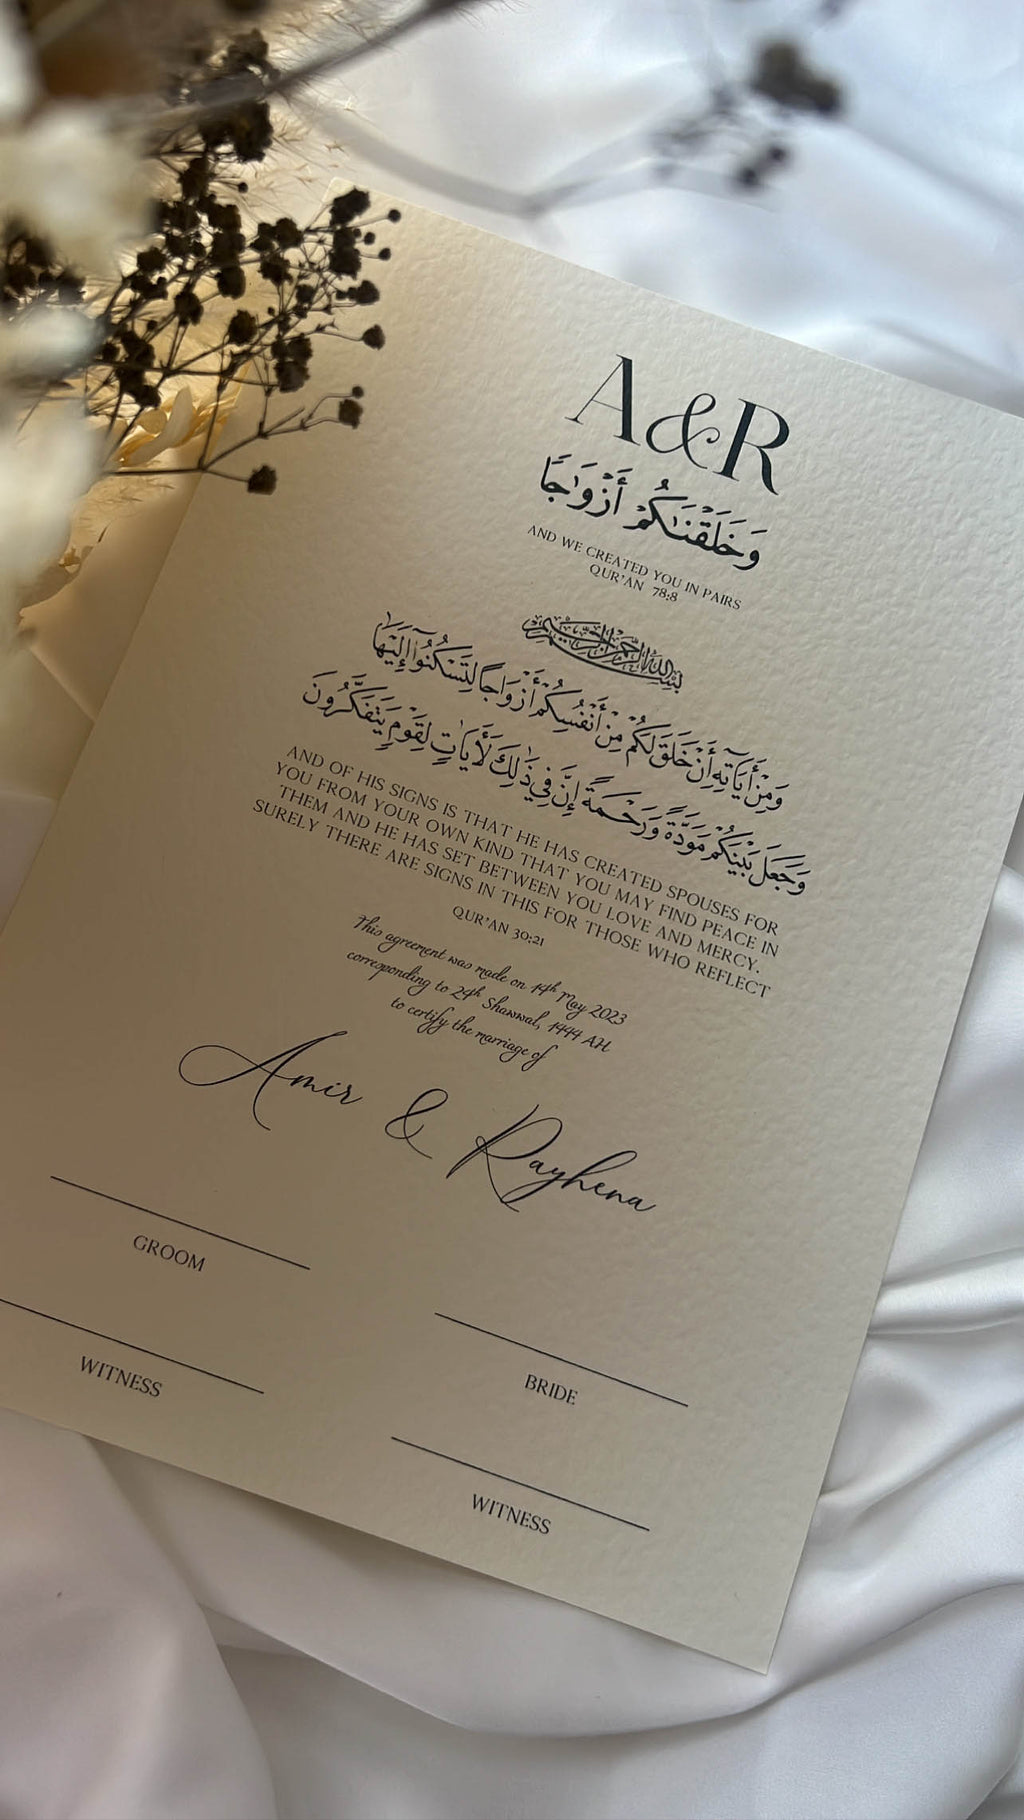 A&R
وَخَلَقْنَاكُمْ أَزْوَاجًا
AND WE CREATED YOU IN PAIRS
QUR'AN 78:8
بسم الله الرحمن الرحيم
وَمِنْ أَيَاتِهِ أَنْ خَلَقَ لَكُمْ مِنْ أَنْفُسِكُمْ أَزْوَاجًا لِتَسْكُنُوا إِلَيْهَا
وَجَعَلَ بَيْنَكُمْ مَوَدَّةً وَرَحْمَةً إِنَّ فِي ذَٰلِكَ لَأَيَاتٍ لِقَوْمٍ يَتَفَكَّرُونَ
AND OF HIS SIGNS IS THAT HE HAS CREATED SPOUSES FOR
YOU FROM YOUR OWN KIND THAT YOU MAY FIND PEACE IN
THEM AND HE HAS SET BETWEEN YOU LOVE AND MERCY.
SURELY THERE ARE SIGNS IN THIS FOR THOSE WHO REFLECT
QUR'AN 30:21
This agreement was made on 14th May 2023
corresponding to 24th Shawwal, 1444 AH
to certify the marriage of
Amir & Rayhena
GROOM
BRIDE
WITNESS
WITNESS